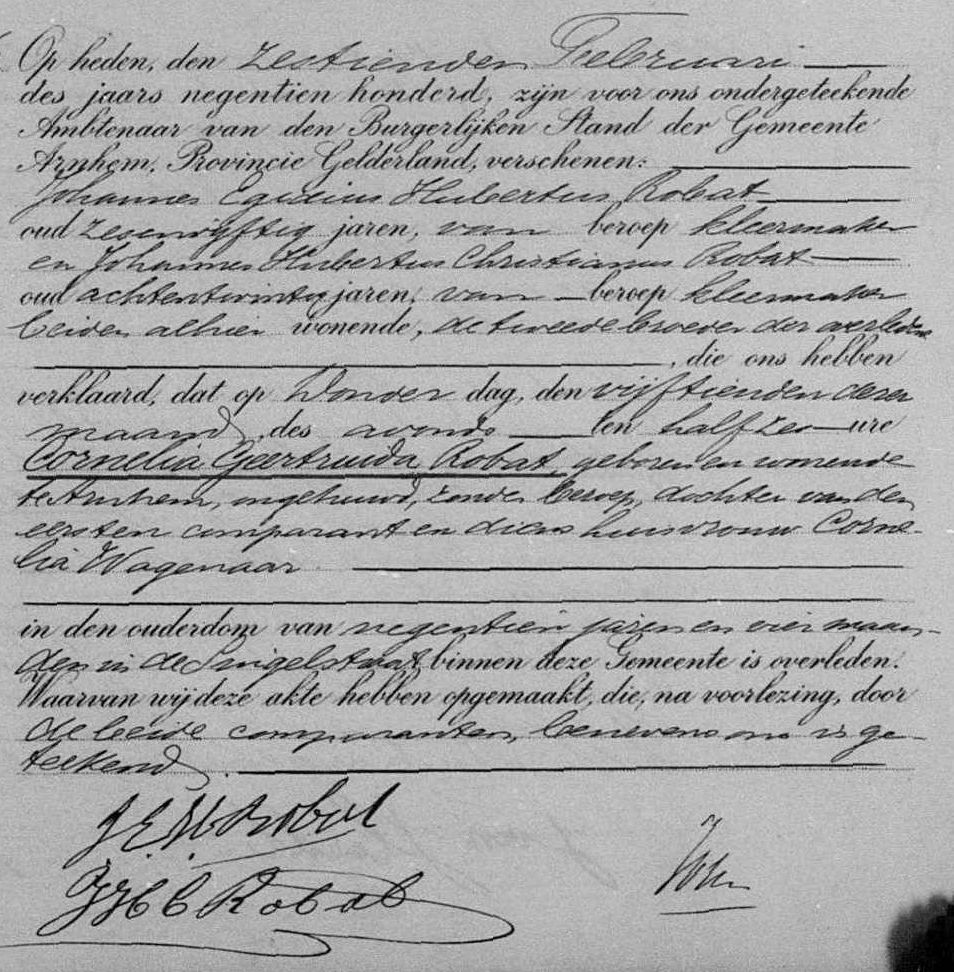 Op heden, den zestienden Februari
des jaars negentien honderd, zijn voor ons ondergeteekende
Ambtenaar van den Burgerlijken Stand der Gemeente
Arnhem, Provincie Gelderland, verschenen:
Johannes Egidius Hubertus Robat
oud zesenvijftig jaren, van beroep kleermaker
en Johannes Hubertus Christianus Robat
oud achtentwintig jaren, van beroep kleermaker
beiden alhier wonende, de tweede broeder der overledene
, die ons hebben
verklaard, dat op Donder dag, den vijftienden dezer
maand, des avonds ten half zes ure
Cornelia Geertruida Robat, geboren en wonende
te Arnhem, ongehuwd, zonder beroep, dochter van den
eersten comparant en diens huisvrouw Corne-
lia Wagenaar
in den ouderdom van negentien jaren en vier maan-
den in de Singelstraat, binnen deze Gemeente is overleden.
Waarvan wij deze akte hebben opgemaakt, die, na voorlezing, door
de beide comparanten, benevens ons is ge-
teekend.
J.E.H. Robat
J H C Robat